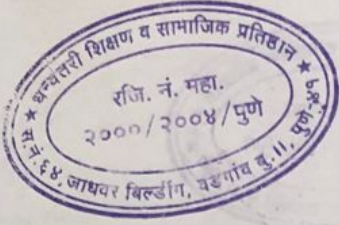 ★ धन्वंतरी शिक्षण व सामाजिक प्रतिष्ठान ★
रजि. नं. महा.
२०००/२००४/पुणे
स.नं. ६४, जाधवर बिल्डींग, वडगांव बु.॥, पुणे.